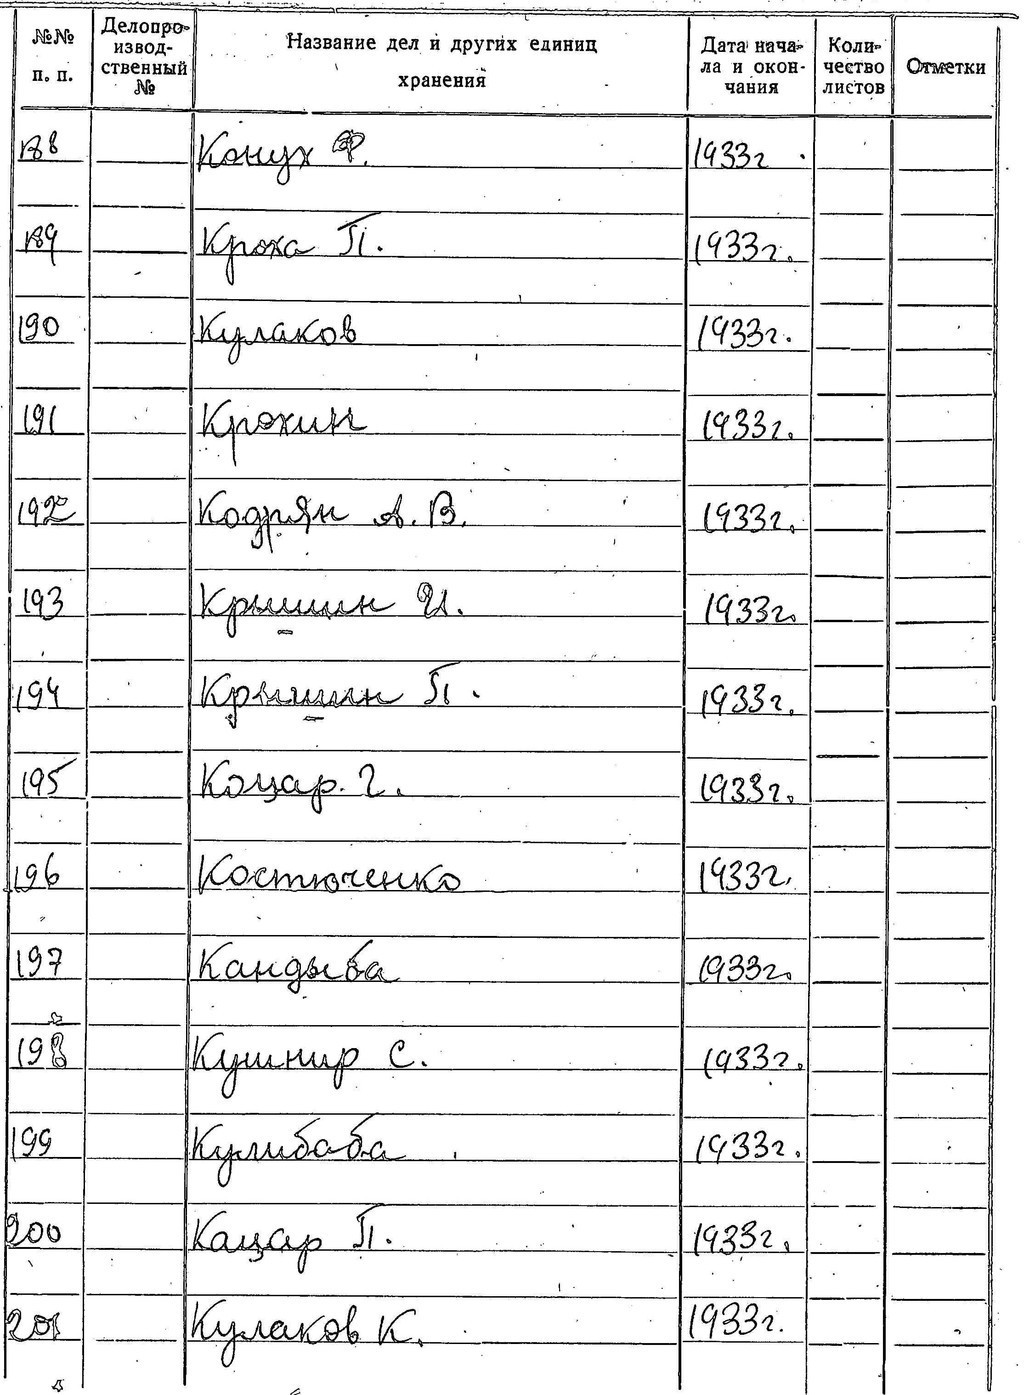 №№ п. п. Делопроизводственный № Название дел и других единиц хранения Дата начала и окончания Количество листов Отметки
188 Конух Ф. 1933г.
189 Кроха П. 1933г.
190 Кулаков 1933г.
191 Крохин 1933г.
192 Кодрян А. В. 1933г.
193 Крышин И. 1933г.
194 Крышин П. 1933г.
195 Коцар. Г. 1933г.
196 Костюченко 1933г.
197 Кандыба 1933г.
198 Кушнир С. 1933г.
199 Кулибаба 1933г.
200 Кацар П. 1933г.
201 Кулаков К. 1933г.